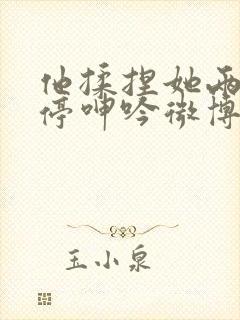 他揉捏她两
停呻吟微博
玉小泉